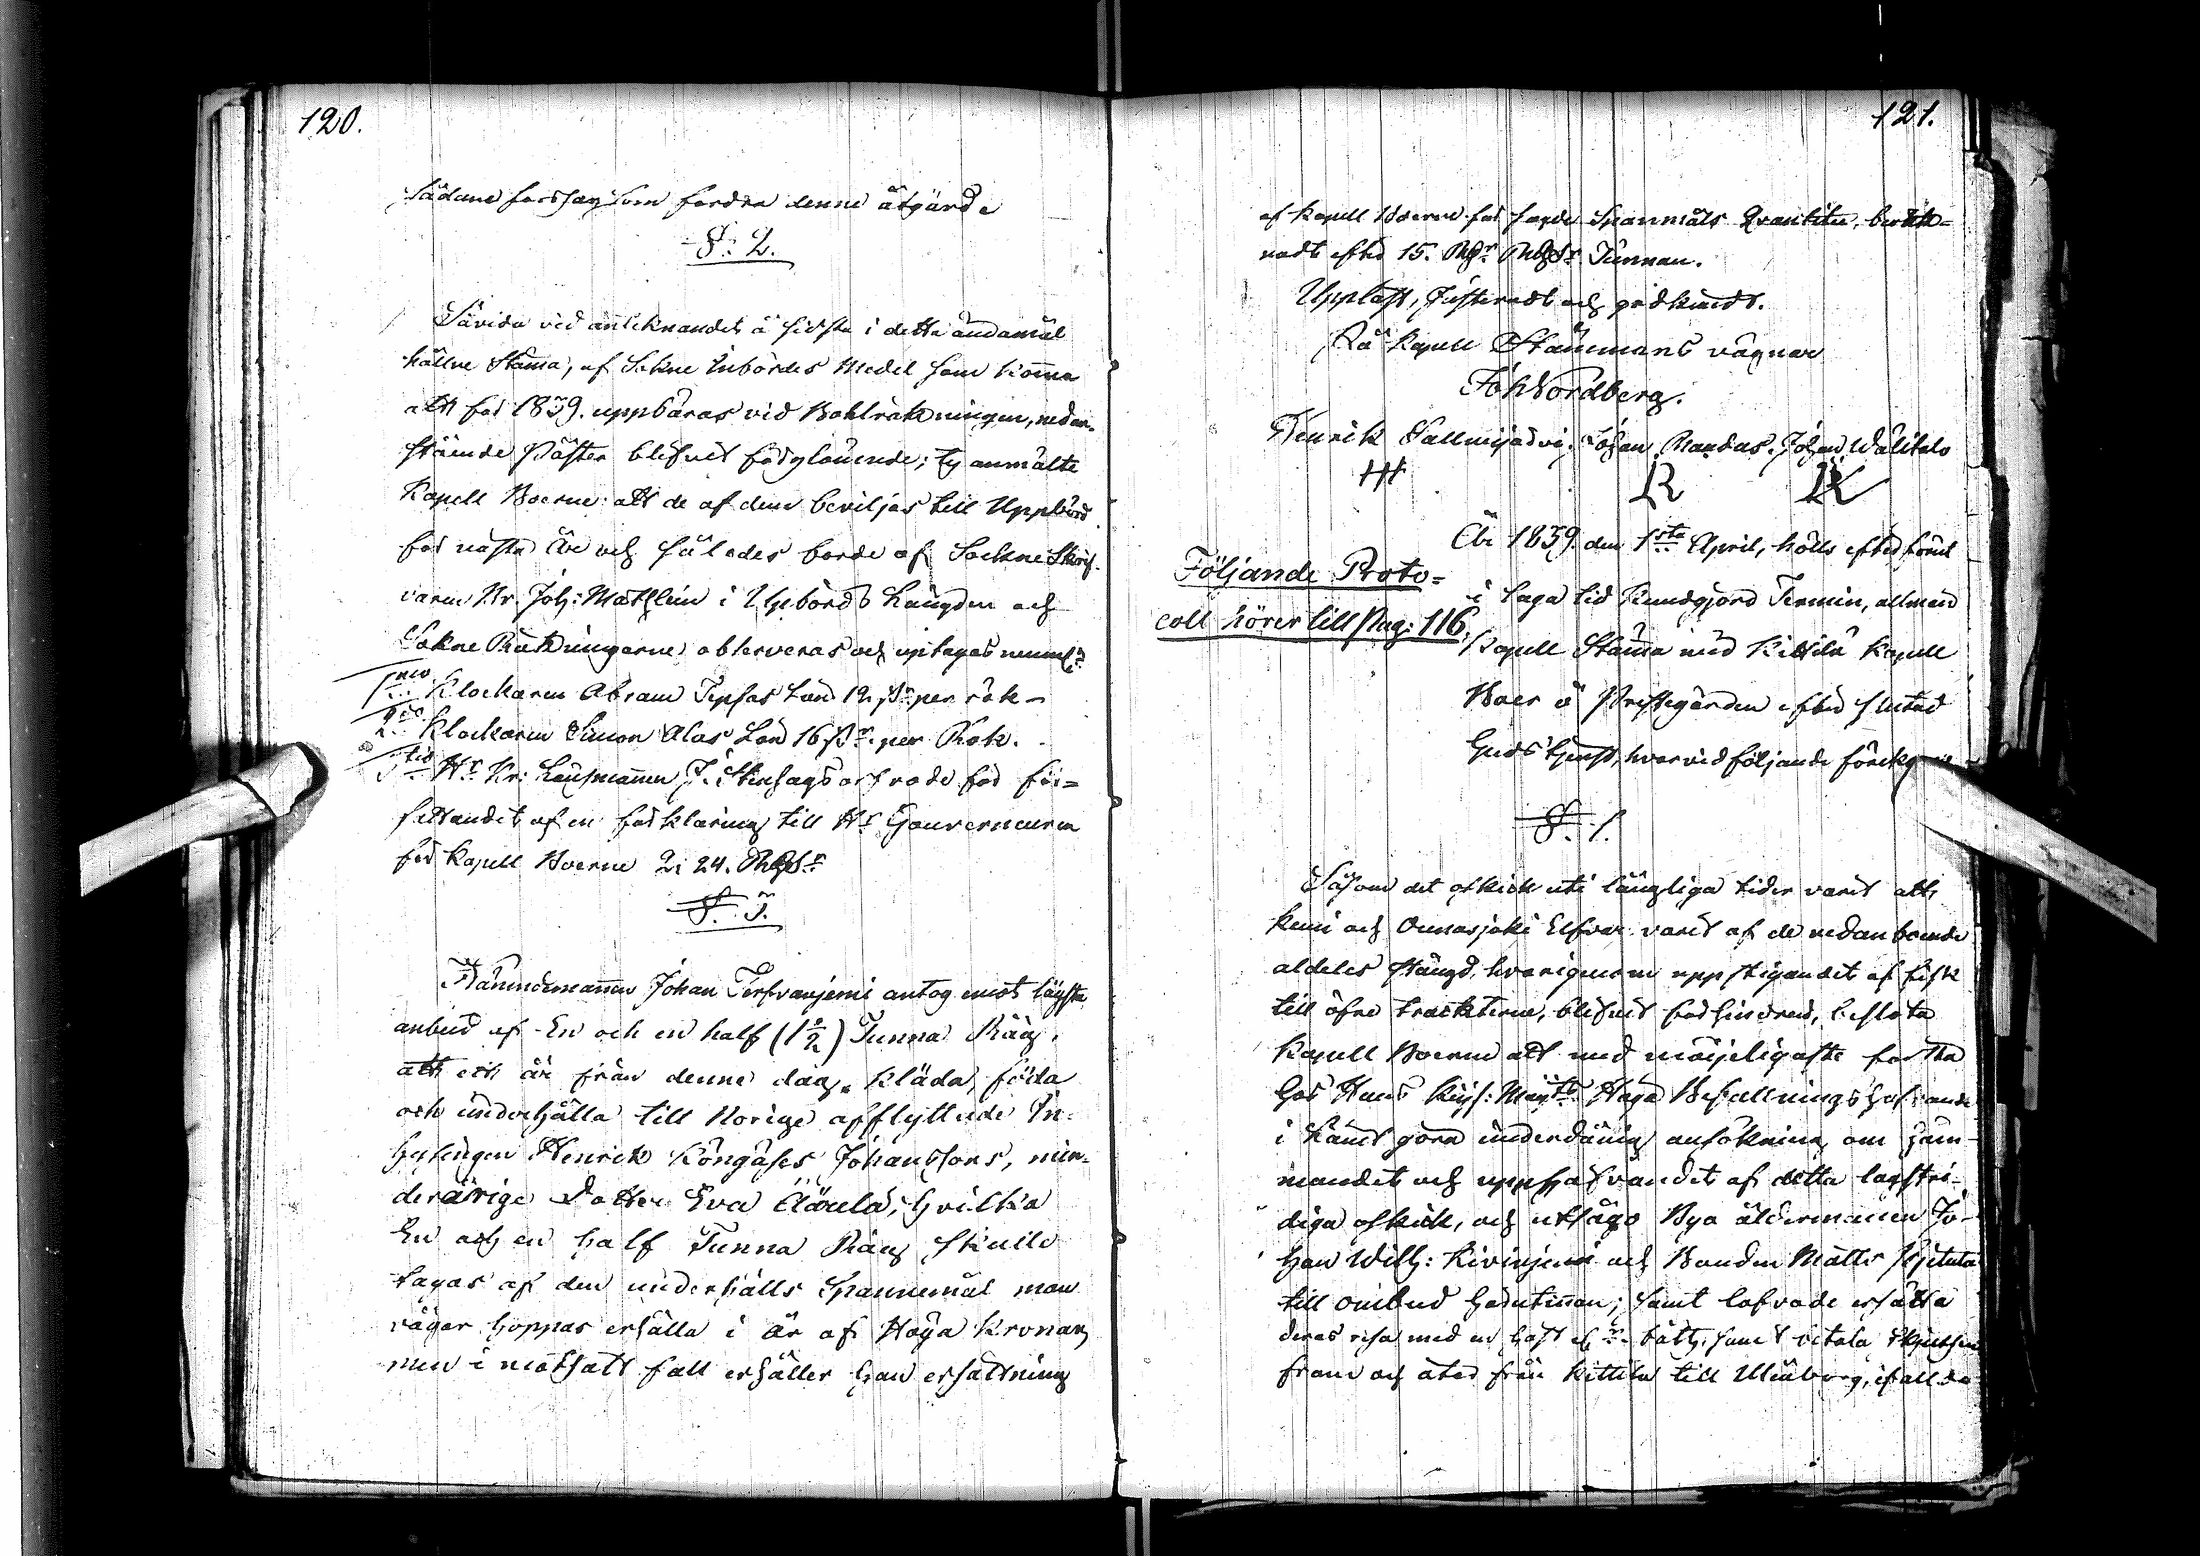 120.
sådane förslag som fordra denne åtgärd.
§. 2.
Såvida vid antiknandet å sidsta i detta ändamål
hållne Stäma, af Sokne Inbördes Medel som komma
att för 1839. uppbäras vid Bohlräkningen, nedan-
stående Påster blifvit förglömde; ty anmälte
Kapell Boerne att de af dem beviljas till Uppbörd
för nästa År och således borde af Sockne Skrif-
varen Hr. Joh: Mathlein i Upbörds Längden och
Sokne Räkningarne observeras och uptagas nemml:n
1mo Klockaren Abram Tepsas Lön 12 per rök
2do Klockaren Simon Alas Lön 16 per Rök.
3tio Hr Kr: Länsmannen J. arfvode för för-
fattandet af en förklaring till Hr Gouverneuren
för Kapell Boerne 2; 24.
§. 3.
Nämndemannen Johan Terfvanjemi antog emot lägsta
anbud af En och en half (1 1/2) Tunna Råg,
att ett år från denne dag, kläda, föda
och underhålla till Norige afflyttade In-
hysingen Henrik Köngäses Johanssons, min-
derårige Dotter Eva hvilka
En och en half Tunna Råg skulle
tagas af den underhålls Spannemål man
vågar hoppas erhålla i år af Höga Kronan,
men i motsatt fall erhåller han ersättning
121.
af Kapell Boerne för sagde Spanmåls Qvantitee, beräk-
nadt efter 15. Tunnan.
Uppläst, Justeradt och godkändt.
På Kapell Stämmans vägnar
Joh Nordberg.
Henrik Johan Johan Wälitalo
År 1839. den 1sta April, hölls efter förut
i laga tid kundgjord Termin, allmän
Kapell Stäma med Kittilä Kapell
Boer å Prästgården efter slutad
Guds tjenst, hvarvid följande förekom
Följande Proto-
coll hörer till Pag: 116.
§. 1.
Såsom det ofskick uti långliga tider varit att
Kemi och Ounasjoki Elfvar varit af de nedanboende
aldeles stängd, hvarigenom uppstigandet af fisk
till öfre trackterne, blifvit förhindrad, besluta
Kapell Boerne att med möijeligaste första
hos Hans Keijs: Maij:ts Höga Befallningshafvande
i Länet göra underdånig ansökning om häm-
mandet och upphäfvandet af detta lagstri-
diga ofskick, och utsågo Bya åldermannen Jo-
han Wilh: Kivinjemi och Bonden Matts
till ombud härutinnan; samt lofvade ersätta
deras resa med en häst båtth. samt betala Skjutsen
fram och åter från Kittilä till Uleåborg, ifall de